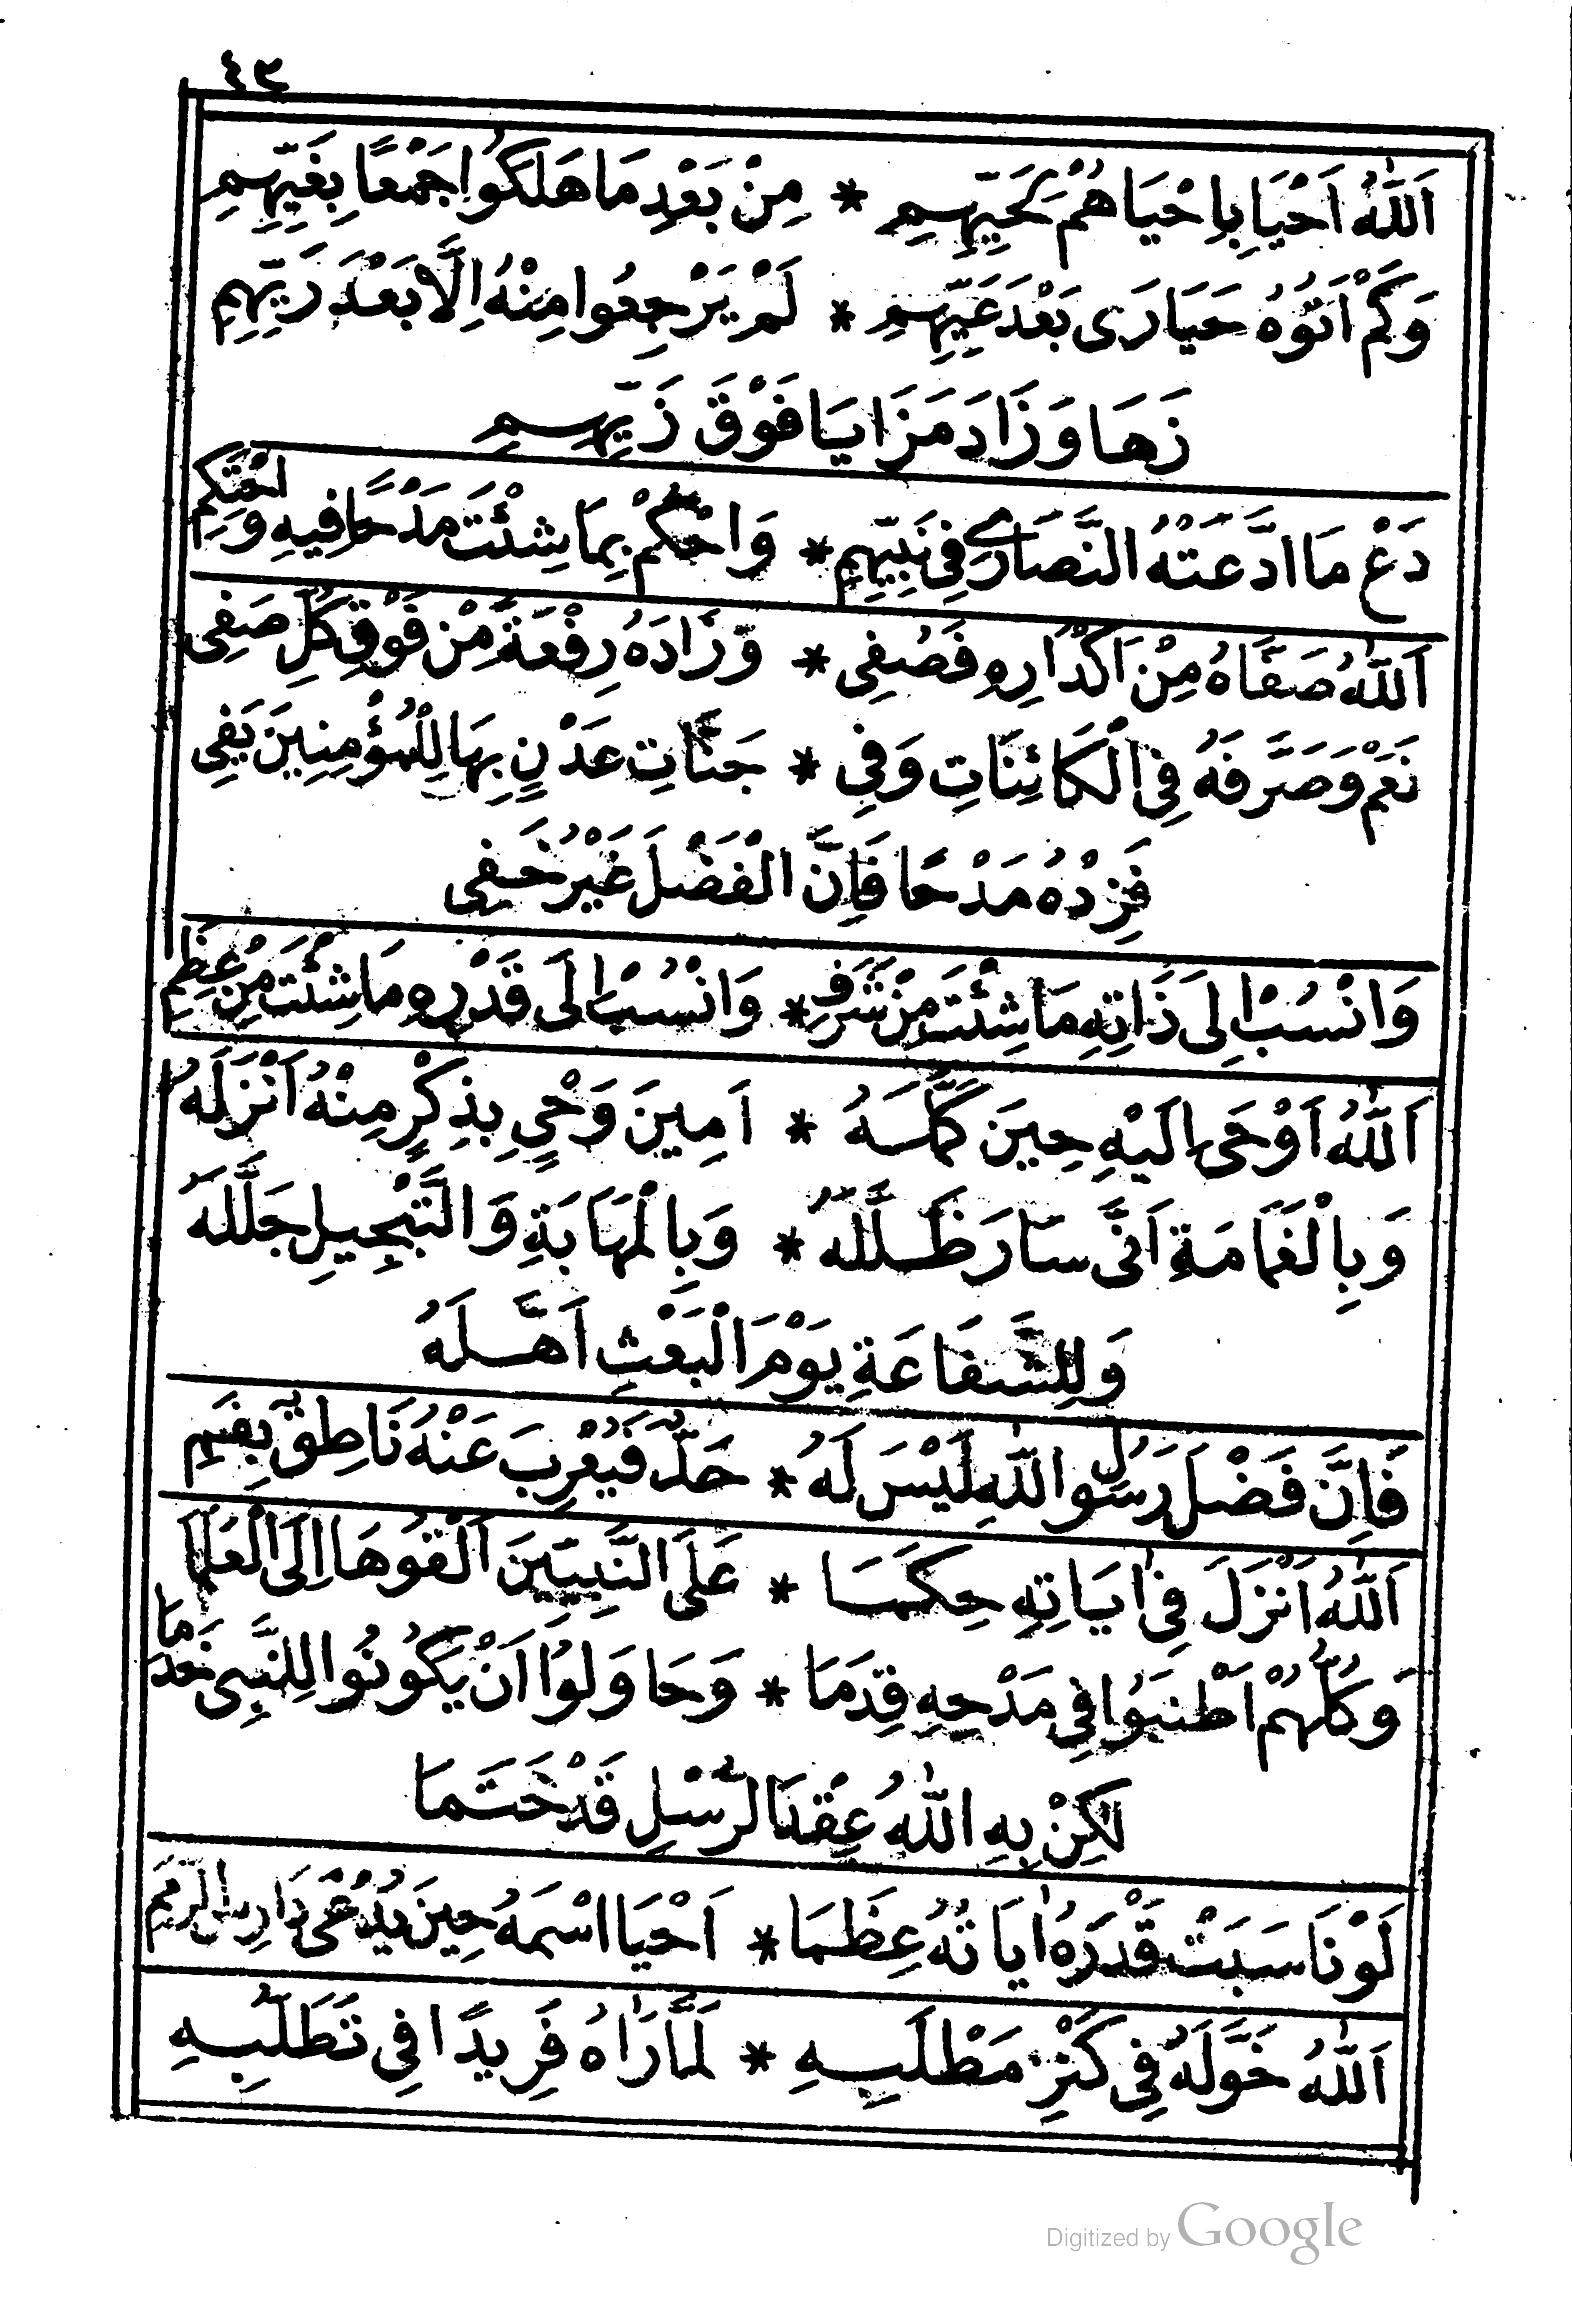 ٤٣
اَللّٰهُ اَحْيَا بِاِحْيَاهُمْ كَحَيِّهِمِ * مِنْ بَعْدِ مَا هَلَكُوا جَمْعًا بِغَيِّهِمِ
وَكَمْ اَتَوْهُ حَيَارَى بَعْدَ عَيِّهِمِ * لَمْ يَرْجِعُوا مِنْهُ اِلَّا بَعْدَ رَيِّهِمِ
زَهَا وَزَادَ مَزَايَا فَوْقَ زَيِّهِمِ
دَعْ مَا ادَّعَتْهُ النَّصَارَى فِى نَبِيِّهِمِ * وَاحْكُمْ بِمَا شِئْتَ مَدْحًا فِيهِ وَاحْتَكِمِ
اَللّٰهُ صَفَّاهُ مِنْ اَكْدَارِهِ فَصُفِى * وَزَادَهُ رِفْعَةً مِنْ فَوْقِ كُلِّ صَفِى
نَعَمْ وَصَرَّفَهُ فِى الْكَائِنَاتِ وَفِى * جَنَّاتِ عَدْنٍ بِهَا لِلْمُؤْمِنِينَ يَفِى
فَزِدْهُ مَدْحًا فَاِنَّ الْفَضْلَ غَيْرُ خَفِى
وَانْسُبْ اِلَى ذَاتِهِ مَا شِئْتَ مِنْ شَرَفٍ * وَانْسُبْ اِلَى قَدْرِهِ مَا شِئْتَ مِنْ عِظَمِ
اَللّٰهُ اَوْحَى اِلَيْهِ حِينَ كَلَّمَهُ * اَمِينَ وَحْىٍ بِذِكْرٍ مِنْهُ اَنْزَلَهُ
وَبِالْغَمَامَةِ اَنَّى سَارَ ظَلَّلَهُ * وَبِالْمَهَابَةِ وَالتَّبْجِيلِ جَلَّلَهُ
وَلِلشَّفَاعَةِ يَوْمَ الْبَعْثِ اَهَّلَهُ
فَاِنَّ فَضْلَ رَسُولِ اللّٰهِ لَيْسَ لَهُ * حَدٌّ فَيُعْرِبَ عَنْهُ نَاطِقٌ بِفَمِ
اَللّٰهُ اَنْزَلَ فِى اٰيَاتِهِ حِكَمَا * عَلَى النَّبِيِّينَ اَلْقَوْهَا اِلَى الْعُلَمَا
وَكُلُّهُمْ اَطْنَبَوُا فِى مَدْحِهِ قِدَمَا * وَحَاوَلُوا اَنْ يَكُونُوا لِلنَّبِى خَدَمَا
لٰكِنْ بِهِ اللّٰهُ عِقْدَ الرُّسْلِ قَدْ خَتَمَا
لَوْ نَاسَبَتْ قَدْرَهُ اٰيَاتُهُ عِظَمَا * اَحْيَا اسْمُهُ حِينَ يُدْعَى دَارِسَ الرِّمَمِ
اَللّٰهُ خَوَّلَهُ فِى كَنْزِ مَطْلَبِهِ * لَمَّا رَاٰهُ فَرِيدًا فِى تَطَلُّبِهِ
Digitized by Google